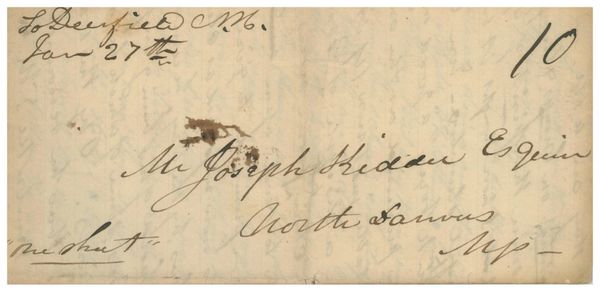 So Deerfield N.H.
Jan 27th
10
Mr Joseph Kidder Esquire
North Danvers
Ms
"one sheet"